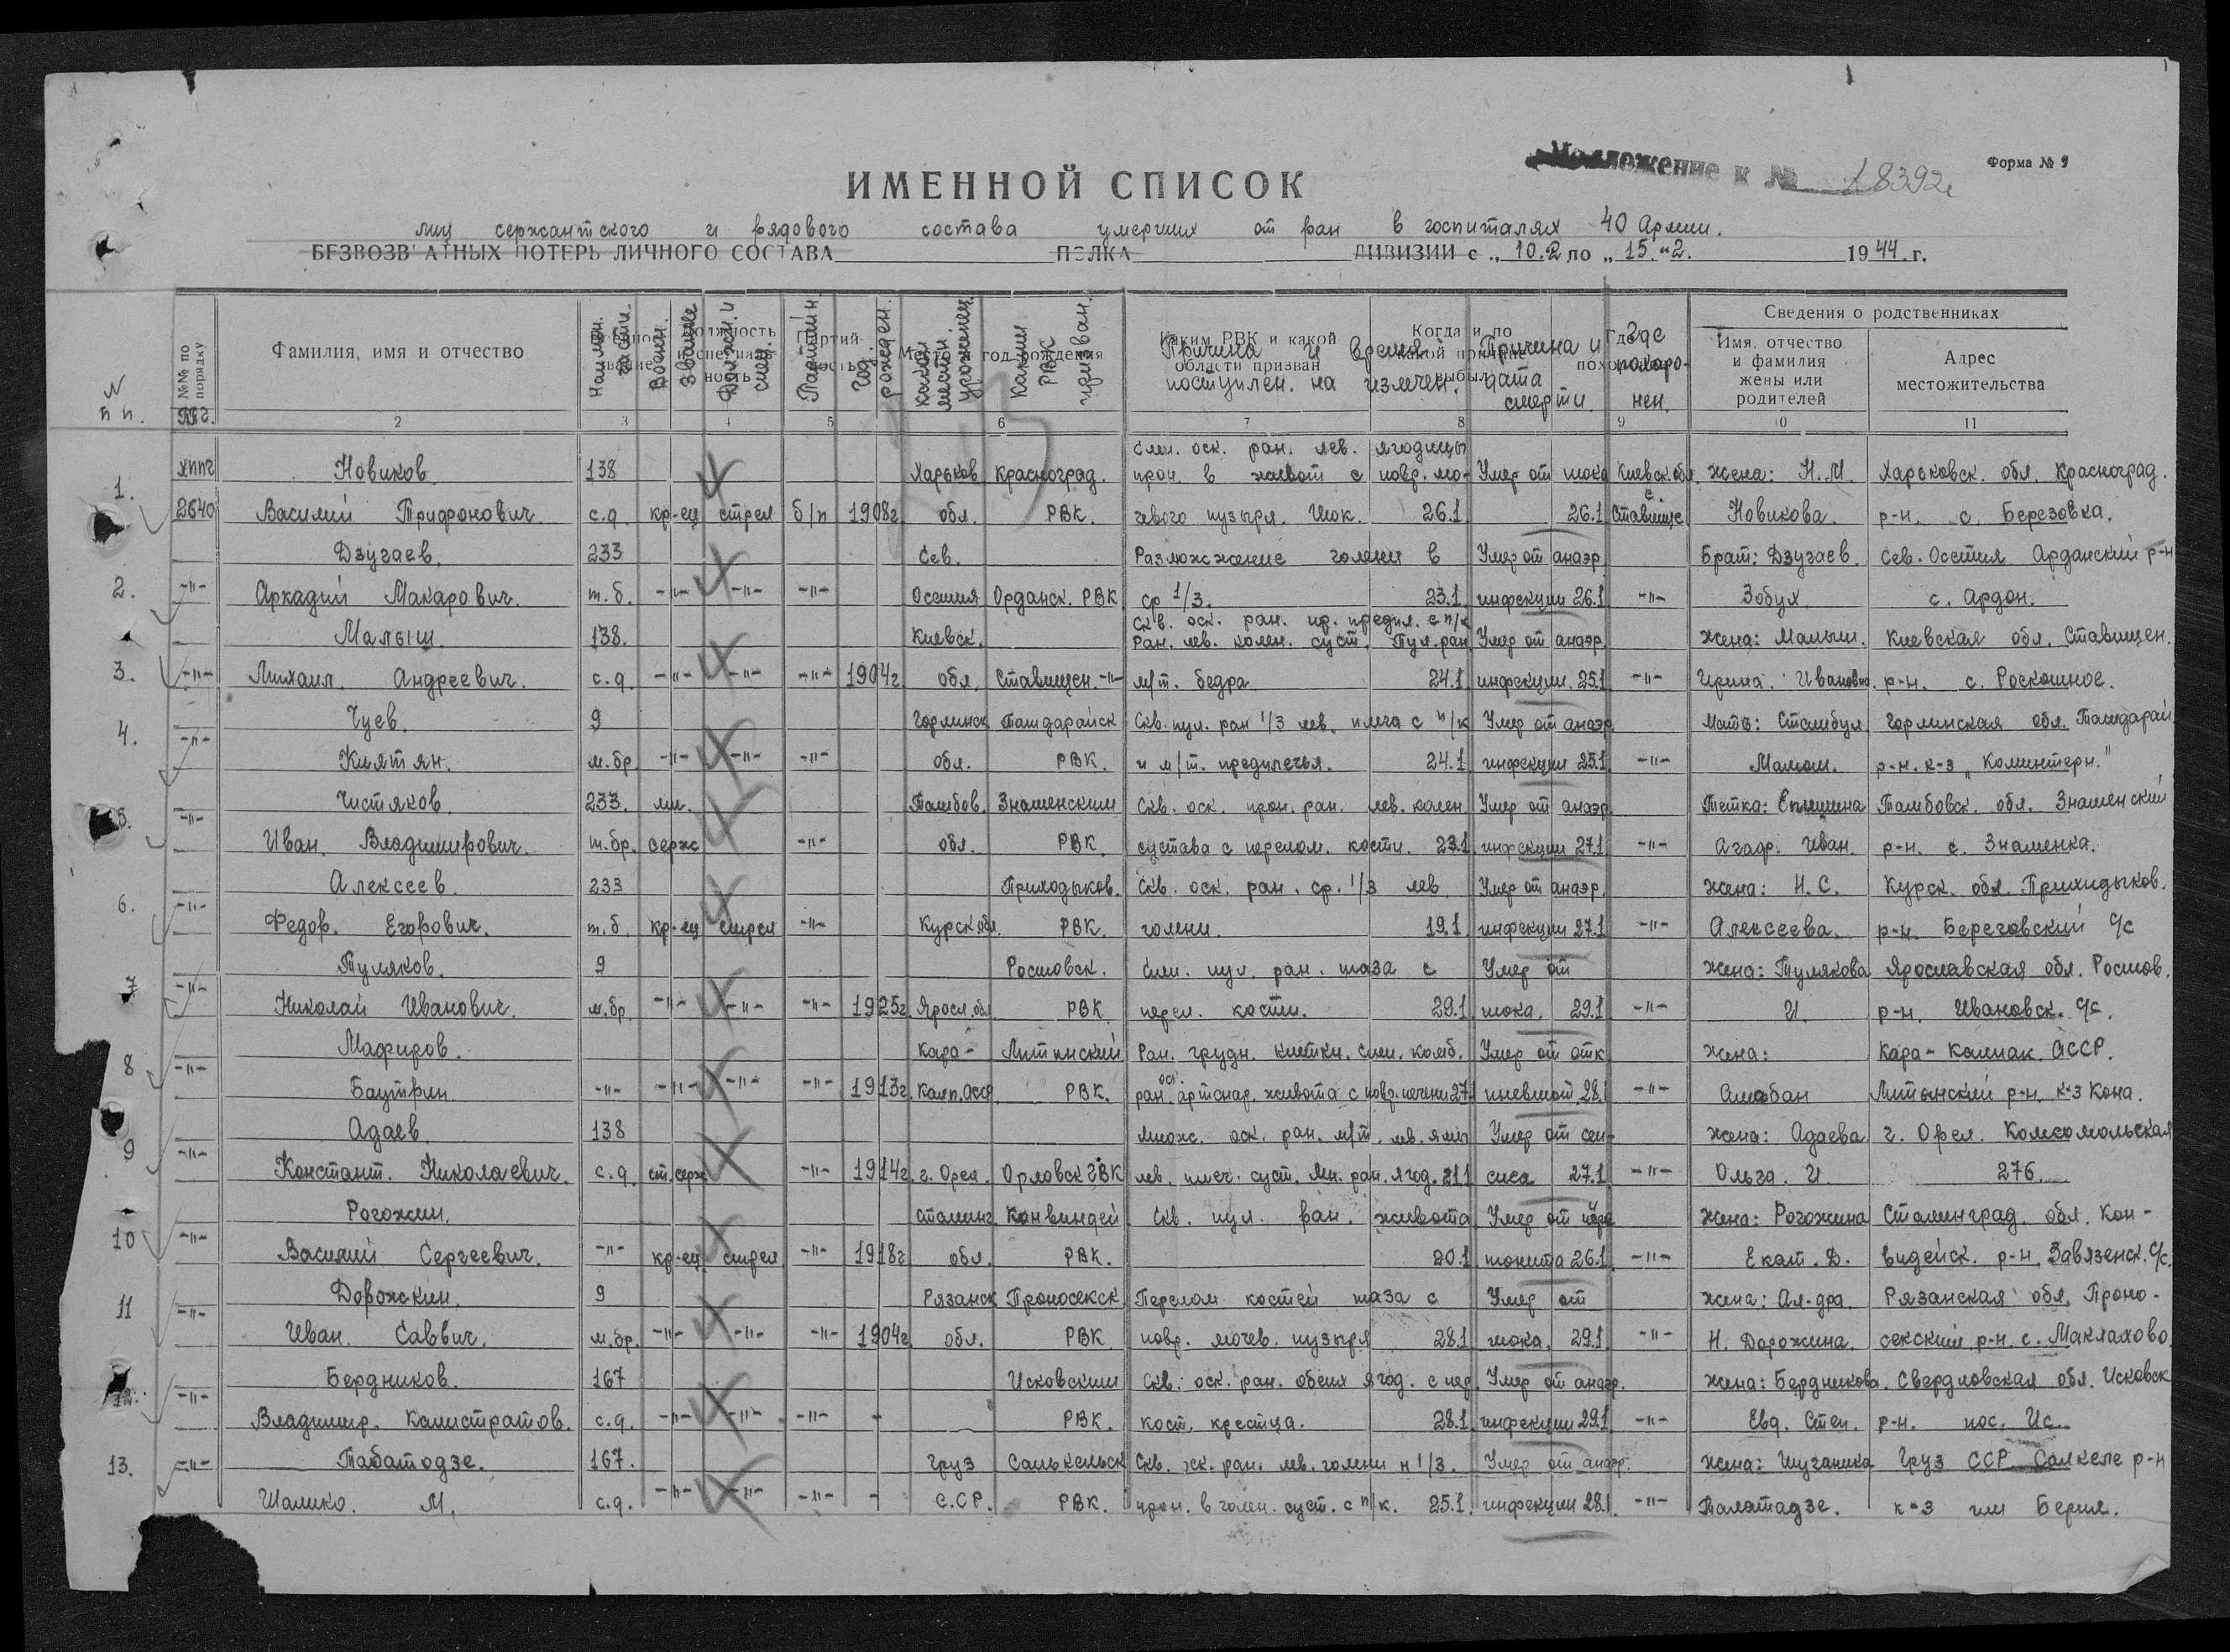 Форма № 9
Приложение к № 18392с
ИМЕННОЙ СПИСОК
лиц сержантского и рядового состава умерших от ран в госпиталях 40 Армии.
БЕЗВОЗВРАТНЫХ ПОТЕРЬ ЛИЧНОГО СОСТАВА ПОЛКА ДИВИЗИИ с „ 10.2 по „ 15.“ 2. 1944. г.
N п п. №№ по порядку ППГ. Фамилия, имя и отчество Наимен. части. Воен. звание Должн. и спец. Партийн. Год рожден. Какой местн. урожен. Каким РВК призван. Причина и время поступлен. на излечен. Причина и дата смерти. Где похоронен. Сведения о родственниках
Имя, отчество и фамилия жены или родителей Адрес местожительства
2 3 4 5 6 7 8 9 10 11
Слеп. оск. ран. лев. ягодицы
1. хппг Новиков 138 Харьков Красноград. прон. в живот с повр. мо- Умер от шока Киевск. обл. жена: Н.М. Харьковск. обл. Красноград.
2640 Василий Трифонович. с.д. кр-ец стрел б/п 1908г. обл. РВК. чевого пузыря. Шок. 26.1 26.1 с. Ставище Новикова. р-н. с. Березовка.
2. Дзугаев. 233 Сев. Размозжение голени в Умер от анаэр. Брат: Дзугаев. Сев. Осетия Ардонский р-н
-"- Аркадий Макарович. т.б. -"- -"- -"- Осетия Орданск. РВК ср 1/3. 23.1 инфекции 26.1 -"- Зобул. с. Ардон.
Скв. оск. ран. пр. предпл. с п/к
3. Малыш. 138. Киевск. Ран. лев. колен. суст. Пул. ран Умер от анаэр. жена: Малыш. Киевская обл. Ставищен.
-"- Михаил. Андреевич. с.д. -"- -"- -"- 1904г. обл. Ставищен. -"- м/т. бедра 24.1 инфекции. 25.1 -"- Ирина. Ивановна. р-н. с. Роскошное.
4. Чуев. 9 Горлинск Ташдарайск Скв. пул. ран 1/3 лев. плеча с п/к Умер от анаэр. Мать: Стамбул. Горлинская обл. Ташдарай
-"- Киятян. м.бр. -"- -"- -"- обл. РВК. и м/т. предплечья. 24.1 инфекции 25.1 -"- Мамом. р-н. к-з „Коминтерн."
5. Чистяков. 233. мл. Тамбов. Знаменским Скв. оск. прон. ран. лев. колен Умер от анаэр. Тетка: Епишина Тамбовск. обл. Знаменский
-"- Иван. Владимирович. т.бр. серж -"- обл. РВК. сустава с перелом. кости. 23.1 инфекции 27.1 -"- Агафр. Иван. р-н. с. Знаменка.
6. Алексеев. 233 Приходьков. Скв. оск. ран. ср. 1/3 лев Умер от анаэр. жена: Н.С. Курск. обл. Прихидьков.
-"- Федор. Егорович. т.б. кр-ец стрел -"- Курск обл. РВК. голени. 19.1 инфекции 27.1 -"- Алексеева. р-н. Береговский с/с
7 Туляков. 9 Ростовск. Слеп. пул. ран. таза с Умер от жена: Тулякова Ярославская обл. Ростов.
-"- Николай Иванович. м.бр. -"- -"- -"- 1925г. Яросл. обл. РВК перел. кости. 29.1 шока. 29.1 -"- И. р-н. Ивановск. с/с.
8 Мафиров. Кара- Литинский Ран. грудн. клетки. слеп. комб. Умер от отк жена: Кара-Калпак. АССР.
-"- Баутрин -"- -"- -"- -"- 1913г. Калп. Асср РВК. ран. оск. артснар. живота с повр. печени 27.1 пневмот. 28.1 -"- Амабан Литынский р-н. к-з Кона.
9 Адаев 138 Множ. оск. ран. м/т. лев. ямы Умер от сеп- жена: Адаева г. Орел. Комсомольская
-"- Констант. Николаевич. с.д. ст. серж -"- 1914г. г. Орел. Орловск ГВК лев. плеч. суст. Мн. ран. ягод. 21.1 сиса 27.1 -"- Ольга. И. 276.
10 Рогожин. Сталинг. Конвиндей Скв. пул. ран. живота Умер от пери жена: Рогожина Сталинград. обл. Кон-
-"- Василий Сергеевич. -"- кр-ец стрел -"- 1918г обл. РВК. 20.1 тонита 26.1 -"- Екат. Д. видейск. р-н. Завязенск. с/с.
11 Дорожкин. 9 Рязанск Проносекск Перелом костей таза с Умер от жена: Ал-дра Рязанская обл. Проно-
-"- Иван. Саввич. м.бр. -"- -"- -"- 1904г. обл. РВК повр. мочев. пузыря 28.1 шока. 29.1 -"- Н. Дорожина. секский р-н. с. Маклахово.
12. Бердников. 167 Исковским Скв. оск. ран. обеих ягод. с пер. Умер от анаэр. жена: Бердникова. Свердловская обл. Исковск
-"- Владимир. Калистратов. с.д. -"- -"- -"- - РВК. кост. крестца. 28.1 инфекции 29.1 -"- Евд. Степ. р-н. пос. Ис.
13. Табатадзе. 167. Груз Салькельск Скв. оск. ран. лев. голени н 1/3. Умер от анаэр. жена: Шуганика Груз ССР Салкеле р-н
-"- Шалико. М. с.д. -"- -"- -"- - С.СР. РВК. прон. в голен. суст. с п/к. 25.1. инфекции 28.1. -"- Талатадзе. к-з им Берия.